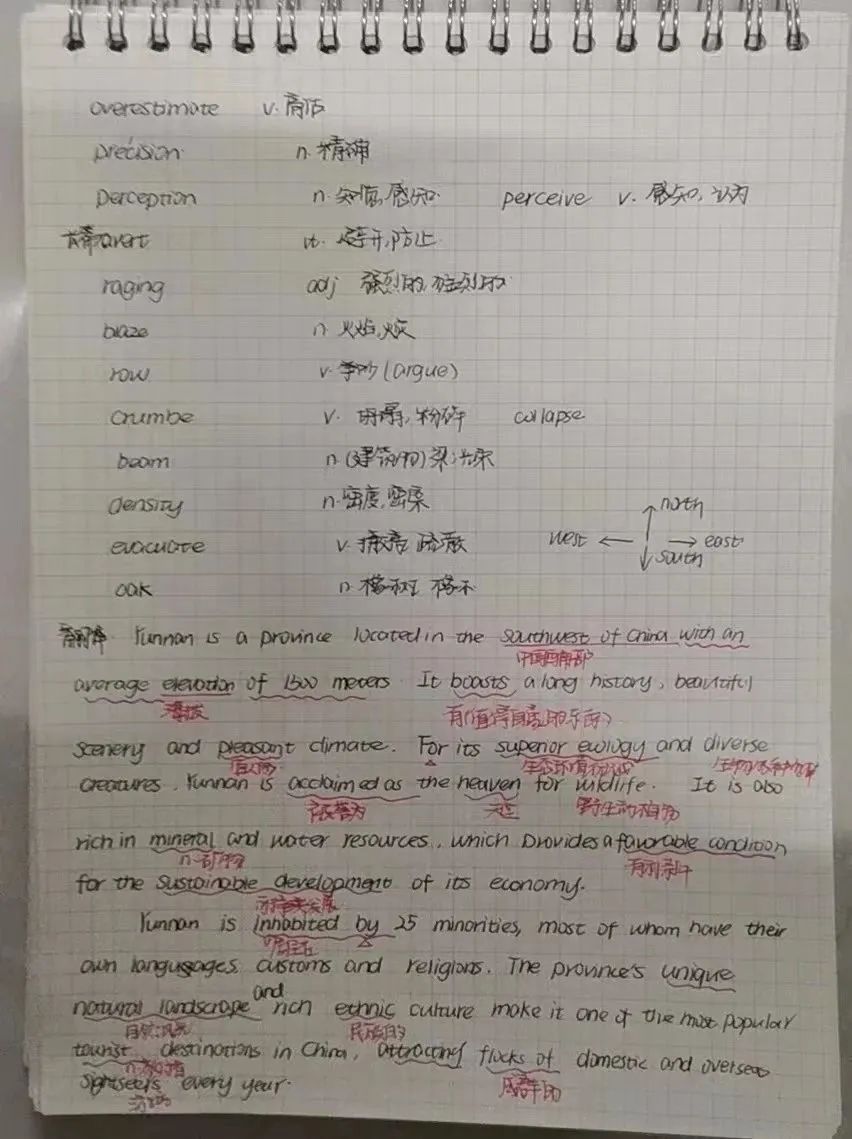 overestimate v. 高估
precision n. 精确
perception n. 知觉,感知 perceive v. 感知,认为
avert vt. 避开,防止
raging adj 强烈的,猛烈的
blaze n 火焰,火灾
row v. 争吵(argue)
crumbe v. 坍塌,粉碎 collapse
beam n.(建筑物)梁;光束
density n.密度,密集
north
evacuate v. 撤离,疏散 west east
south
oak n. 橡树 橡木
翻译. Yunnan is a province located in the southwest of China with an
中国西南部
average elevation of 1500 meters. It boasts a long history, beautiful
海拔 有(值得自豪的东西)
scenery and pleasant climate. For its superior ecology and diverse
宜人的 生态环境
creatures, Yunnan is acclaimed as the heaven for wildlife. It is also
被誉为 天堂 野生动植物
rich in mineral and water resources, which provides a favorable condition
n.矿物 有利条件
for the sustainable development of its economy.
可持续发展
Yunnan is inhabited by 25 minorities, most of whom have their
居住在
own languages customs and religions. The province's unique
natural landscape and rich ethnic culture make it one of the most popular
自然风光 民族的
tourist destinations in China, attracting flocks of domestic and overseas
成群的
sightseers every year.
游客